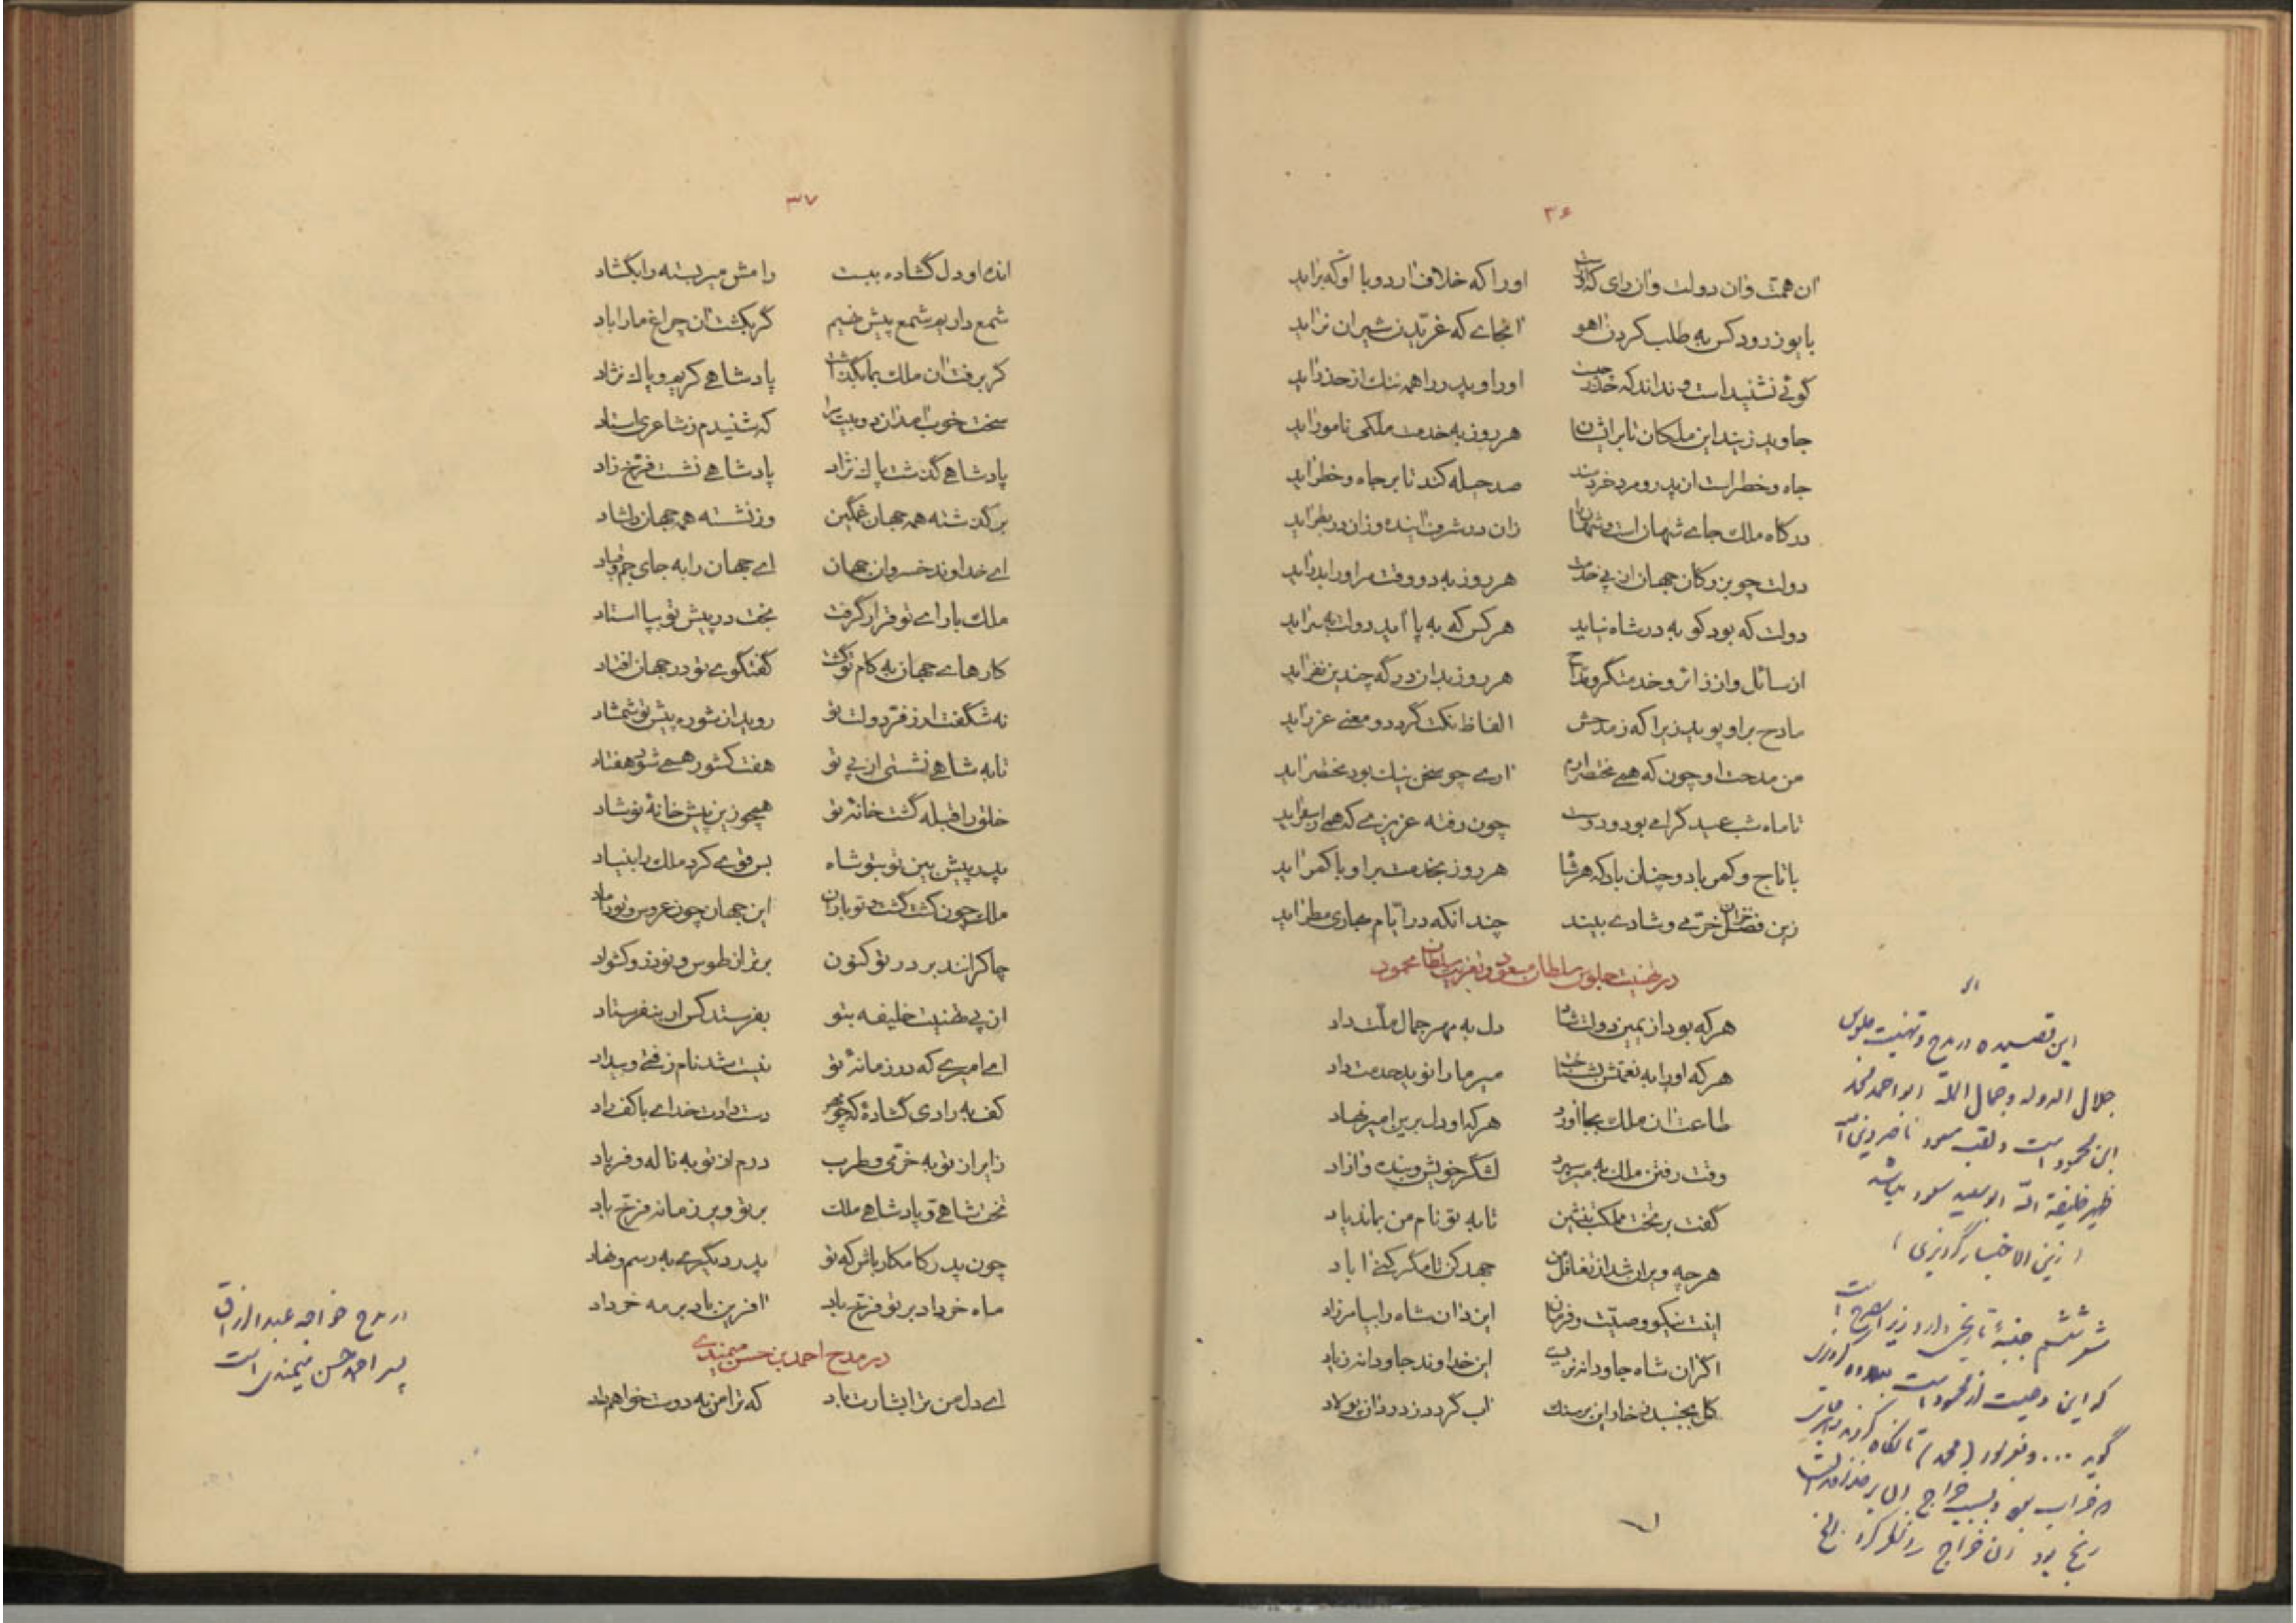 ۳۶
ان همت وان دولت وان رای که اوراست اورا که خلاف ارد و با او که براید
با یوز رود کس به طلب کردن اهو انجاے که غریدن شیران نراید
گوئے نشنیداست و نداند که حذر چیست اورا و پدر را همه ننگ از حذر اید
جاوید زیند این ملکان تا بر ایشان هر روز به خدمت ملکی نامور اید
جاه و خطر است ان در و مرد خردمند صد حیله کند تا بر جاه و خطر اید
درگاه ملک جاے شهان است و شهان را زان در شرف اینده وزان در بطر اید
دولت چو بزرگان جهان از پے خدمت هر روز به دو وقت مر اورا بدر اید
دولت که بود کو به در شاه نیاید هر کس که به پا اید دولت به سر اید
از سائل و از زائر و خدمتگر و مداح هر روز بدان درگه چندین نفر اید
مادح بر او پوید زیرا که ز مدحش الفاظ نکت گردد و معنے غرر اید
من مدحت او چون که همے مختصر ارم ارے چو سخن نیک بود مختصر اید
تا ماه شب عید گرامے بود و دوست چون رفته عزیزے که همے از سفر اید
با تاج و کمر باد و چنان باد که هر شاه هر روز بخدمت بر او با کمر اید
زین فصل خزان خرمے و شادے بیند چندانکه در ایام بهاری مطر اید
در تهنیت جلوس سلطان مسعود و تعزیت سلطان محمود
هر که بود از یمین دولت شاد دل به مهر جمال ملت داد
هر که اورا به نعمتش بشناخت میر مارا نوید خدمت داد
طاعت ان ملک بجا اورد هر که او دل برین امیر نهاد
وقت رفتن ملک به میر سپرد لشگر خویش و بنده و ازاد
گفت بر تخت مملکت بنشین تا به تو نام من بماند یاد
هر چه ویران شد از تغافل من جهد کن تا مگر کنے اباد
اینت نیکو وصیت و فرمان ایزد ان شاه را بیامرزاد
اگر ان شاه جاودانه نزیست این خداوند جاودانه زیاد
گل بخسبد نخاد این بر سنگ اب گردد ز درد ان پولاد
این قصیده در مدح و تهنیت جلوس
جلال الدوله و جمال المله ابو احمد محمد
ابن محمود است و لقب مسعود ناصر دین الله
ظهیر خلیفة الله ابو سعید مسعود میباشد
(زین الاخبار گردیزی)
شعر ششم جنبهٔ تاریخی دارد زیرا صریح است
که این وصیت از محمود است بعلاوه گردیزی
گوید ... و بفرمود (محمد) تا نگاه کردند
خراب بود و بسبب خراج
رنج بود ان خراج را نظر کرد الخ
۳۷
انده او دل گشاده ببست رامش میر بسته را بگشاد
شمع داریم و شمع پیش نهیم گر بکشت ان چراغ مارا باد
گر برفت ان ملک بما بگذاشت پادشاهے کریم و پاک نژاد
سخت خوب امد ان دو بیت مرا که شنیدم ز شاعری استاد
پادشاهے گذشت پاک نژاد پادشاهے نشست فرخ زاد
بر گذشته همه جهان غمگین وز نشسته همه جهان دلشاد
اے خداوند خسروان جهان اے جهان را به جای جم و قباد
ملک با راے تو قرار گرفت بخت در پیش تو بپا استاد
کارهاے جهان به کام تو گشت گفتگوے تو در جهان افتاد
نه شگفت ار ز فر دولت تو روید از شوره پیش تو شمشاد
تا به شاهے نشستی از پے تو هفت کشور همے شود هفتاد
خلق را قبله گشت خانهٔ تو همچو زین پیش خانهٔ نوشاد
پدر پیش بین تو بتو شاه بس قوے کرد ملک را بنیاد
ملک چون کشت گشت و تو باران این جهان چون عروس و تو داماد
چاکرانند بر در تو کنون برتر از طوس و نوذر و کشواد
از پے تهنیت خلیفه بتو بفرستد کس ار بنفرستاد
اے امیرے که در زمانهٔ تو نیست شد نام زفتے و بیداد
کف به رادی گشادهٔ که چو مهر دست دادت خدامے با کف راد
زایران تو به خرمی و طرب درم از تو به ناله و فریاد
تخت شاهے و پادشاهے ملک بر تو و بر زمانه فرخ باد
چون پدر کامکار باش که تو پدر دیگرے به رسم و نهاد
ماه خرداد بر تو فرخ باد افرین باد بر مه خرداد
در مدح احمد بن حسن میمندے
اے دل من ترا بشارت باد که ترا من به دوست خواهم داد
در مدح خواجه عبدالرزاق
پسر احمد حسن میمندی است